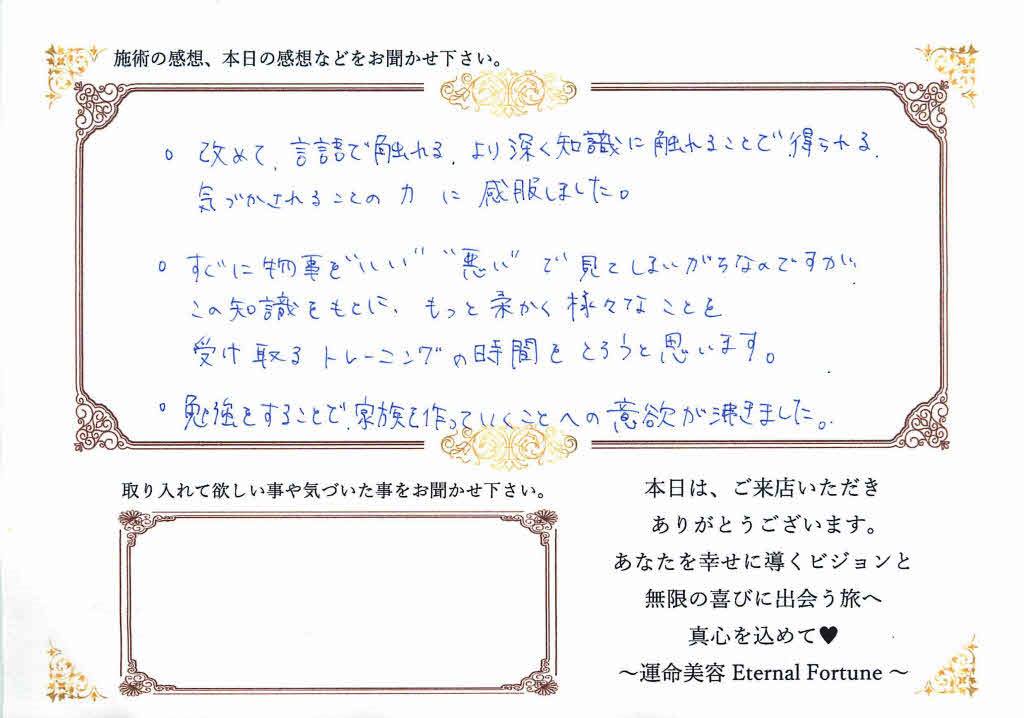 施術の感想、本日の感想などをお聞かせ下さい。
○ 改めて、言語で触れる、より深く知識に触れることで、得られる、
気づかされることの力に感服しました。
○ すぐに物事を"いい" "悪い"で見てしまいがちなのですが、
この知識をもとに、もっと柔かく様々なことを
受け取るトレーニングの時間をとろうと思います。
○ 勉強をすることで、家族を作っていくことへの意欲が沸きました。
取り入れて欲しい事や気づいた事をお聞かせ下さい。
本日は、ご来店いただき
ありがとうございます。
あなたを幸せに導くビジョンと
無限の喜びに出会う旅へ
真心を込めて♥
～運命美容 Eternal Fortune ～